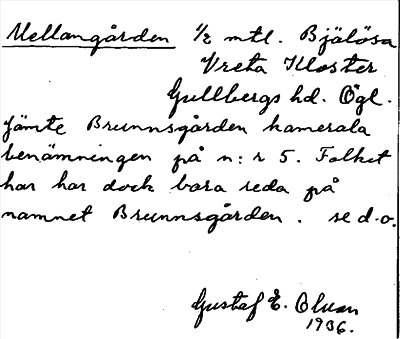 Mellangården 1/2 mtl. Bjälösa
Vreta Kloster
Gullbergs hd. Ögl.
Jämte Brunnsgården kamerala
benämningen på n:r 5. Folket
har har dock bara reda på
namnet Brunnsgården. se d.o.
Gustaf E. Olsson
1936.